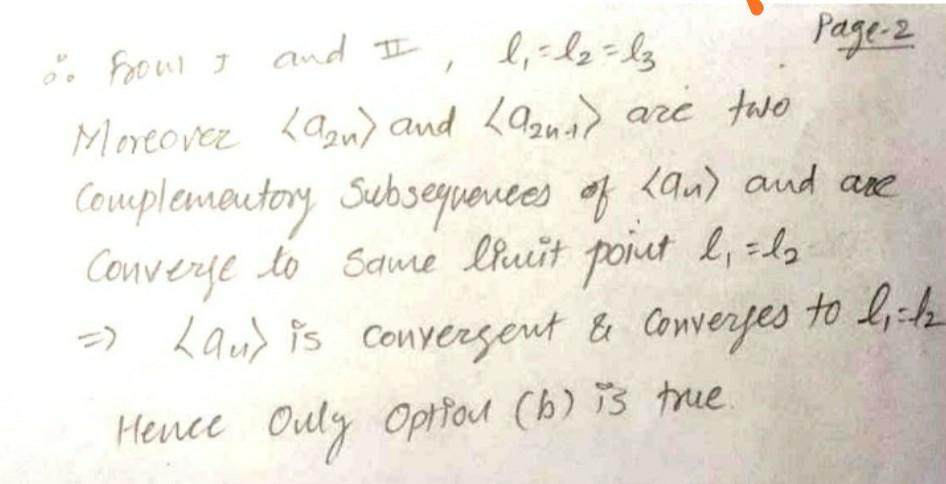 Page-2
∴ from I and II, l₁=l₂=l₃
Moreover <a₂ₙ> and <a₂ₙ₊₁> are two
Complementory Subsequences of <aₙ> and are
Converge to same limit point l₁=l₂
=> <aₙ> is convergent & Converges to l₁=l₂
Hence Only Option (b) is true.